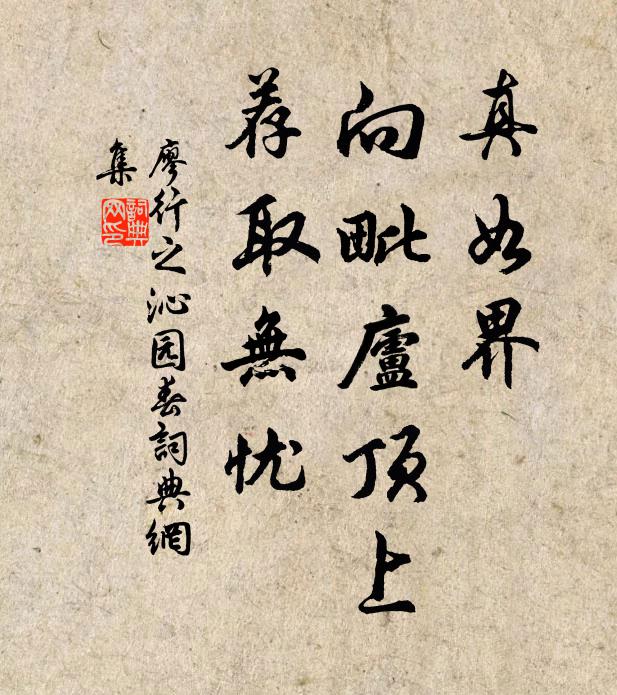 真如界
向毗廬頂上
荐取無忧
廖行之沁园春詞典網
集
詞典
网印